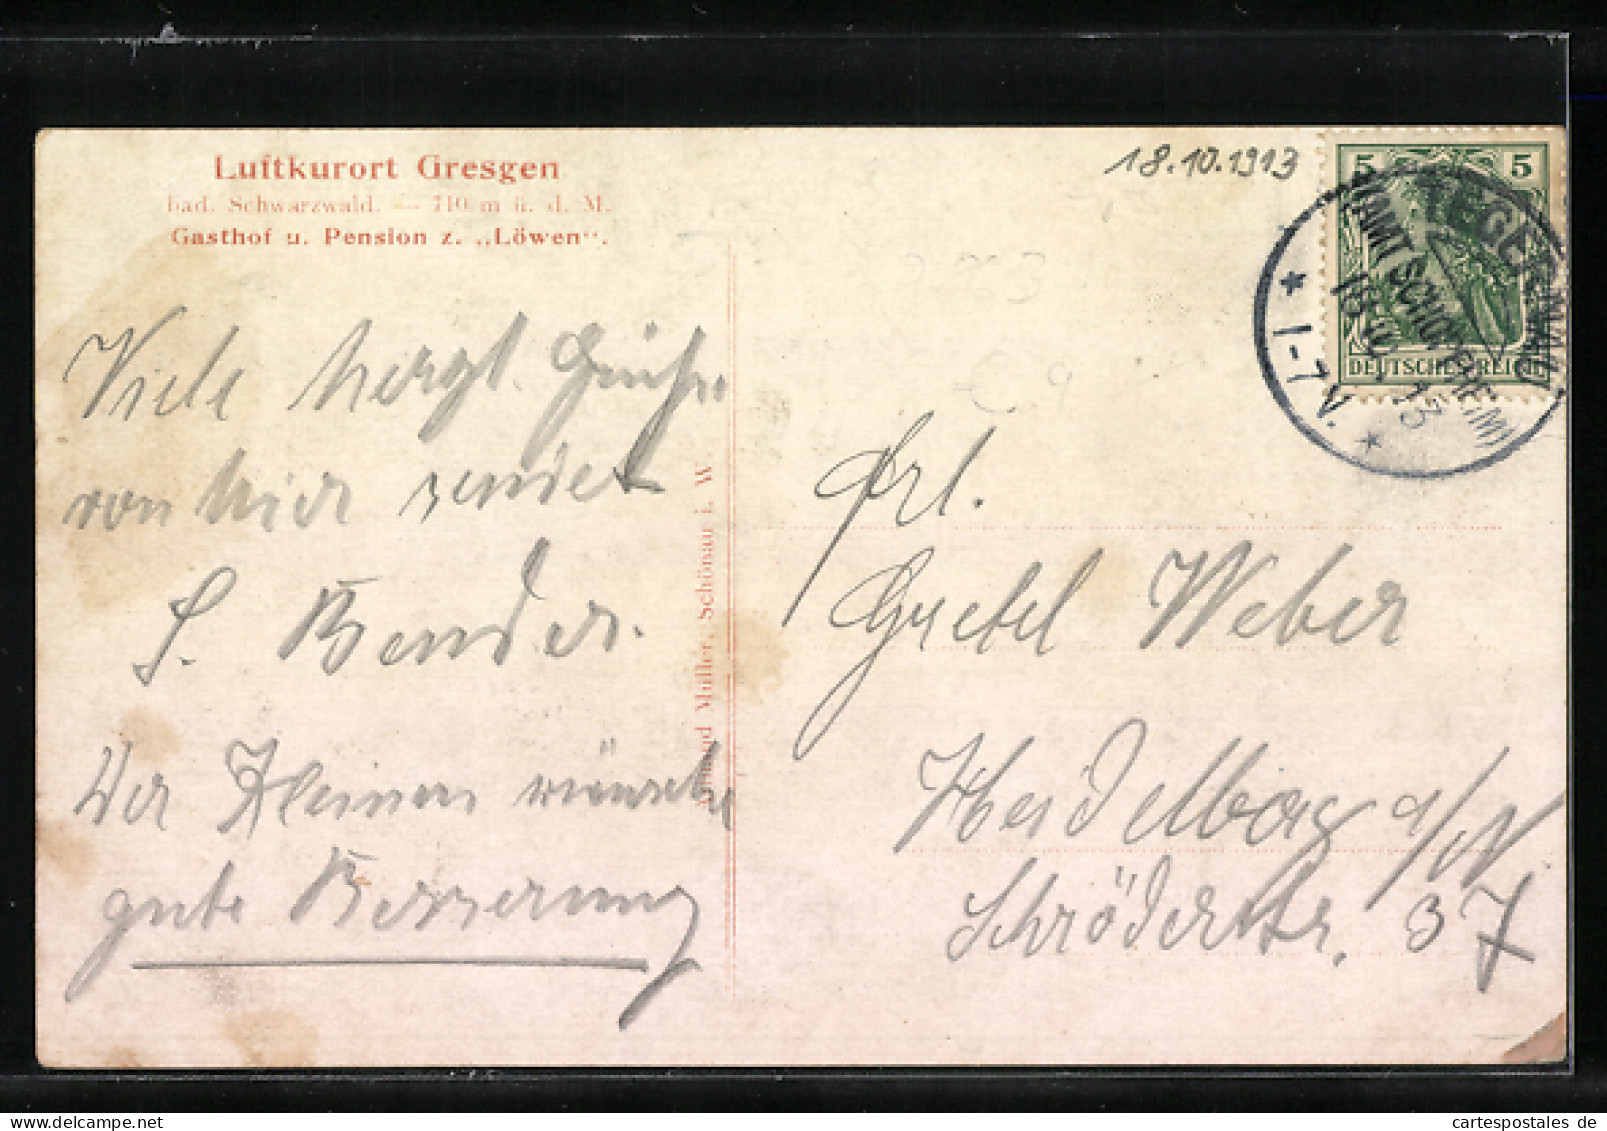 Luftkurort Gresgen
bad. Schwarzwald. — 710 m ü. d. M.
Gasthof u. Pension z. „Löwen“.
18.10.1913
5 5
DEUTSCHES REICH
TEGERNAU
(AMT SCHOPFHEIM)
18.10. 13
* 1-7 V. *
Viele herzl. Grüße
von hier sendet
S. Bender.
Der Kleinen wünsche
gute Besserung
Müller, Schönau i. W
Frl.
Gretel Weber
Heidelberg a/N
Schröderstr. 37
cartespostales de